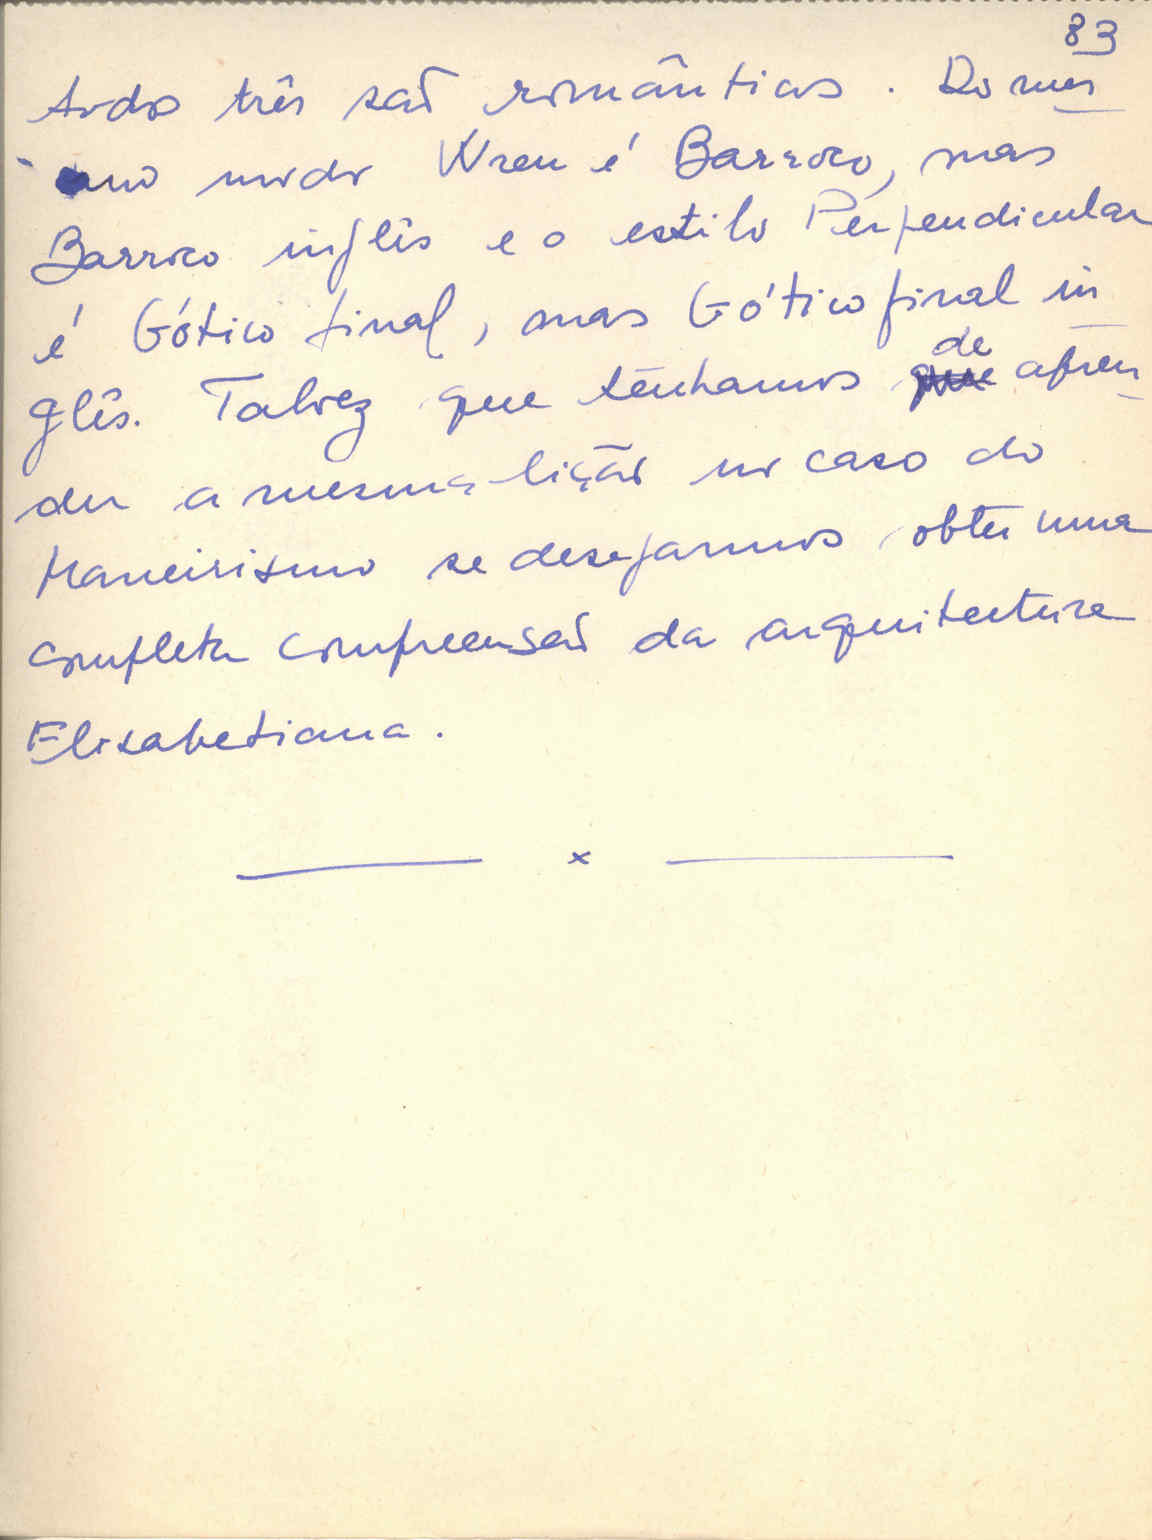 83
todos três são românticos. Do mes
mo modo Wren é Barroco, mas
Barroco inglês e o estilo Perpendicular
é Gótico final, mas Gótico final in
glês. Talvez que tenhamos de apren
der a mesma lição no caso do
Maneirismo se desejarmos obter uma
completa compreensão da arquitectura
Elisabetiana.
x